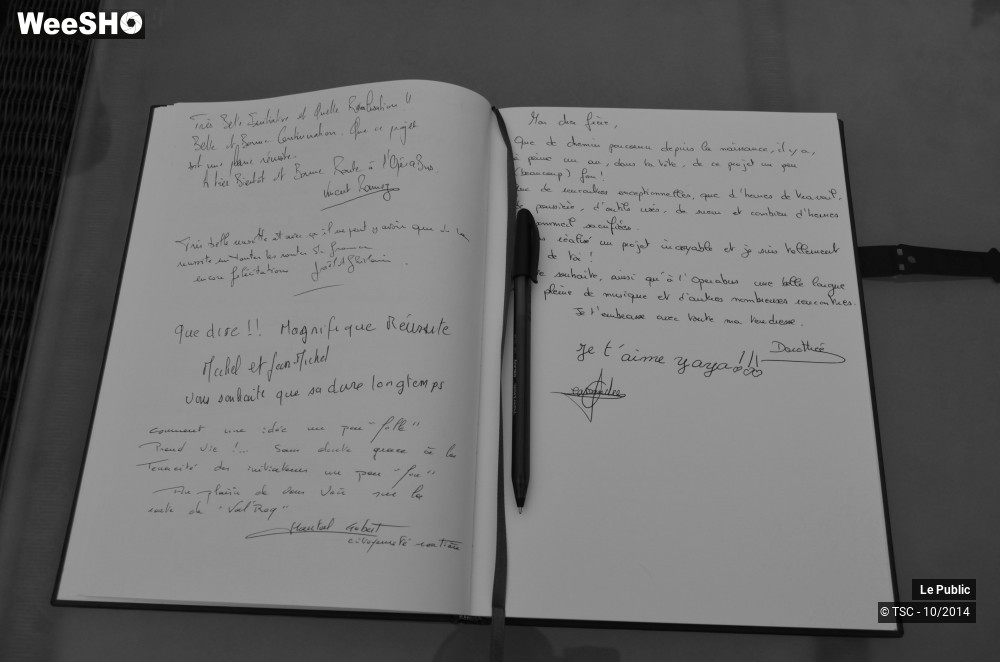 WeeSHO
Très Belle Initiative et Quelle Réalisation !!
Belle et Bonne Continuation. Que ce projet
soit une pleine réussite.
A très Bientôt et Bonne Route à l'OpéraBus.
Vincent
Très belle réussite et
réussite
encore félicitations
Que dire !! Magnifique Réussite
Michel et Jean-Michel
vous souhaite que sa dure longtemps
comment une idée un peu "folle"
Prend vie !... Sans doute grace à la
Tenacité des initiateurs un peu "fou"
Au plaisir de vous voir sur la
route de
Chantal Gobert
citoyenneté
Mon cher frère,
Que de chemin parcouru depuis la naissance, il y a,
à peine un an, dans ta tête, de ce projet un peu
(beaucoup) fou !
de rencontres exceptionnelles, que d'heures de travail,
poussière, d'outils usés, de sueur et combien d'heures
sommeil sacrifiées.
réalisé un projet incroyable et je suis tellement
de toi !
souhaite, ainsi qu'à l'Operabus une belle longue
pleine de musique et d'autres nombreuses rencontres.
Je t'embrasse avec toute ma tendresse.
Dorothée
Je t'aime yaya !!!
Le Public
© TSC - 10/2014